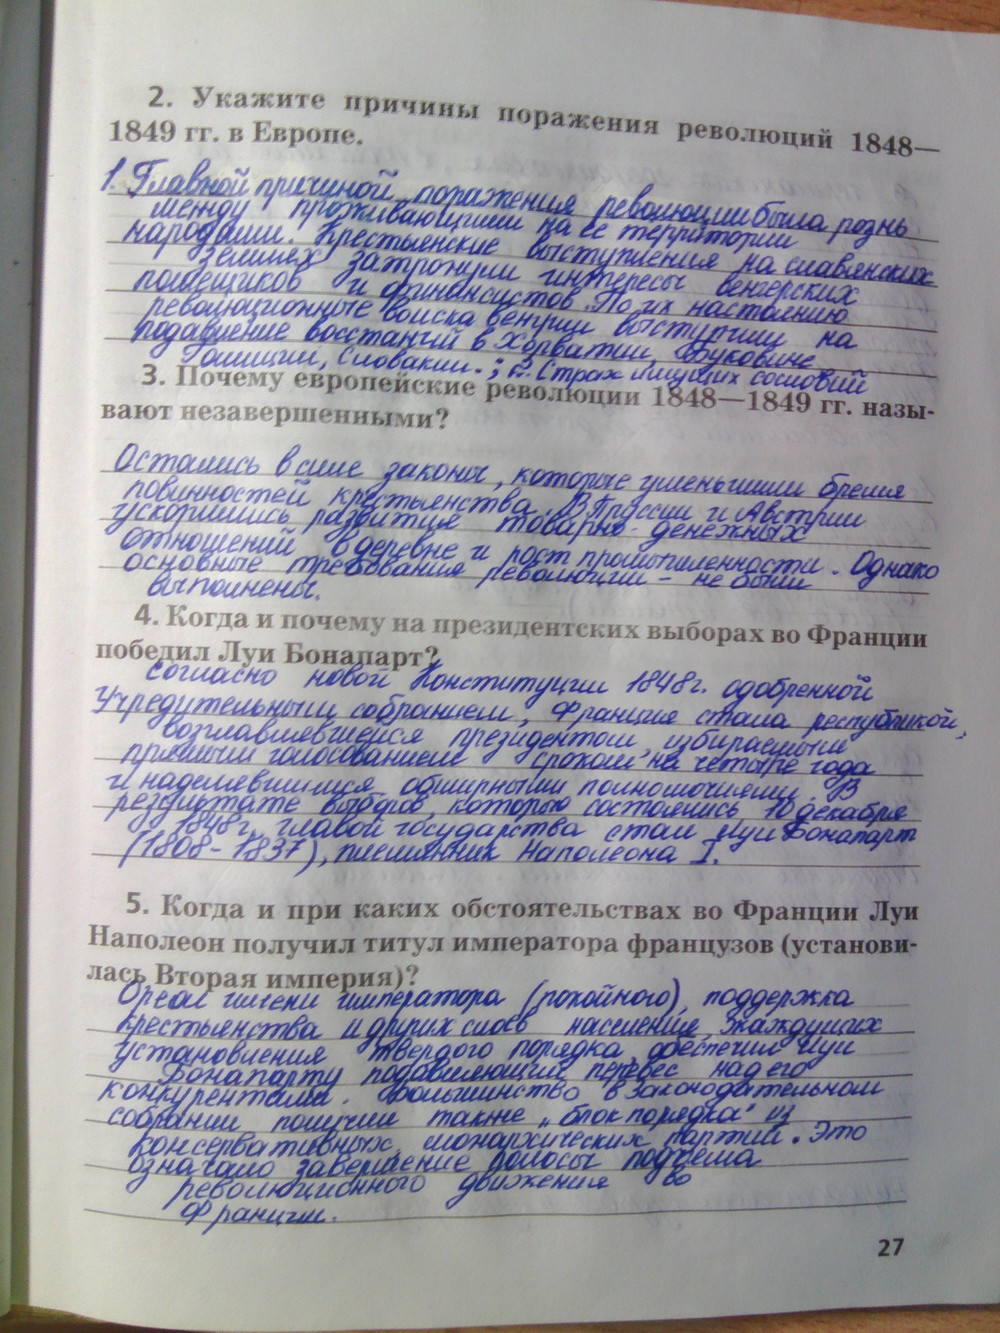 2. Укажите причины поражения революций 1848—
1849 гг. в Европе.
1. Главной причиной поражения революции была рознь
между проживающими на ее территории
народами. Крестьянские выступления на славянских
землях затронули интересы венгерских
помещиков и финансистов. По их настоянию
революционные войска Венгрии выступили на
подавление восстаний в Хорватии, Буковине
Галиции, Словакии. ; 2. Страх имущих сословий
3. Почему европейские революции 1848—1849 гг. назы-
вают незавершенными?
Остались в силе законы, которые уменьшили бремя
повинностей крестьянства. В Пруссии и Австрии
ускорились развития товарно-денежных
отношений в деревне и рост промышленности. Однако
основные требования революции - не были
выполнены.
4. Когда и почему на президентских выборах во Франции
победил Луи Бонапарт?
Согласно новой Конституции 1848г. одобренной
Учредительным собранием, Франция стала республикой,
возглавлявшейся президентом, избираемым
прямым голосованием сроком на четыре года
и наделявшимся обширными полномочиями. В
результате выборов, которые состоялись 10 декабря
1848г. главой государства стал Луи Бонапарт
(1808-1837), племянник Наполеона I.
5. Когда и при каких обстоятельствах во Франции Луи
Наполеон получил титул императора французов (установи-
лась Вторая империя)?
Ореол имени императора (покойного), поддержка
крестьянства и других слоёв населения, жаждущих
установления твердого порядка, обеспечил Луи
Бонапарту подавляющий перевес над его
конкурентами. Большинство в Законодательном
собрании получили также „блок порядка" из
консервативных, монархических партий. Это
означало завершение полосы подъема
революционного движения во
Франции.
27